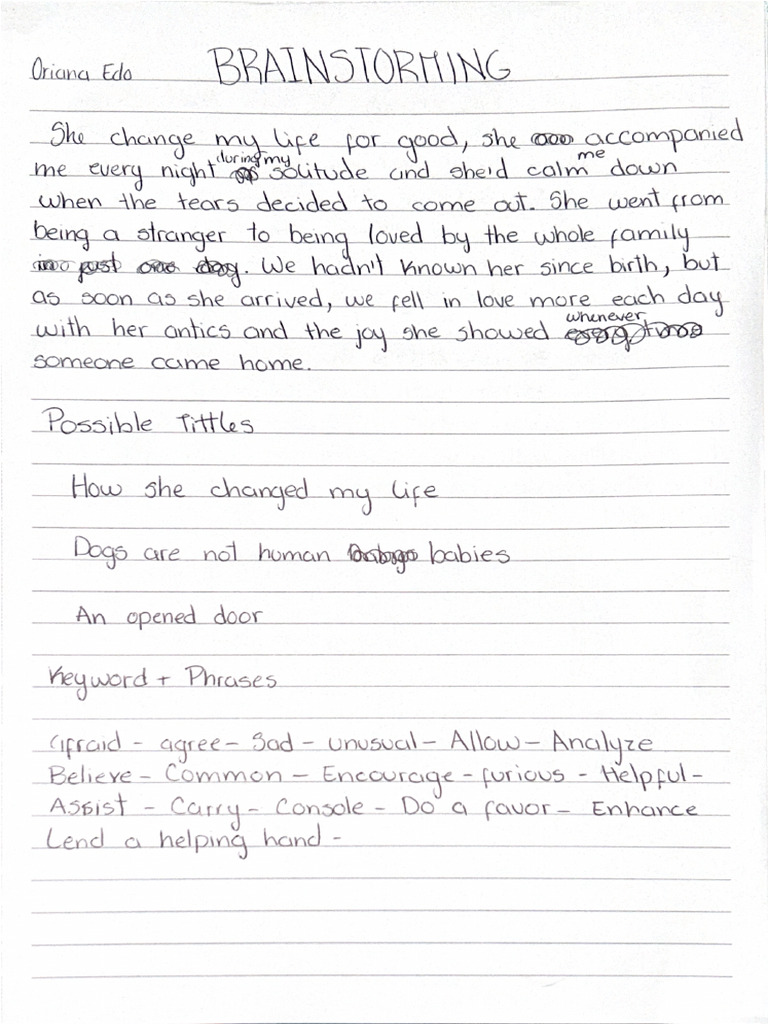 Oriana Edo BRAINSTORMING
She change my life for good, she accompanied
me every night during my solitude and she'd calm me down
when the tears decided to come out. She went from
being a stranger to being loved by the whole family
just one day. We hadn't known her since birth, but
as soon as she arrived, we fell in love more each day
with her antics and the joy she showed whenever
someone came home.
Possible Tittles
How she changed my life
Dogs are not human babies
An opened door
Keyword + Phrases
Afraid - agree - Sad - unusual - Allow - Analyze
Believe - Common - Encourage - furious - Helpful -
Assist - Carry - Console - Do a favor - Enhance
Lend a helping hand -